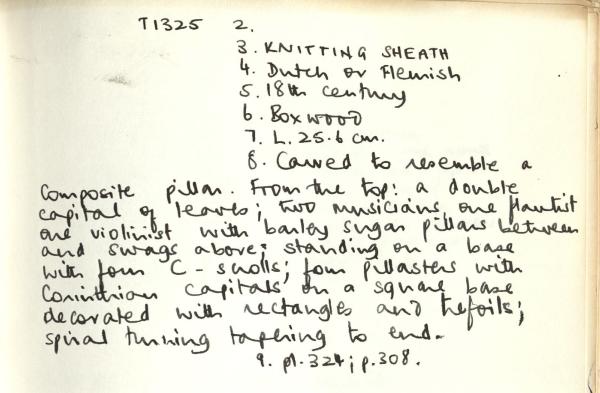 T1325 2.
3. KNITTING SHEATH
4. Dutch or Flemish
5. 18th century
6. Boxwood
7. L. 25.6 cm.
8. Carved to resemble a
composite pillar. From the top: a double
capital of leaves; two musicians, one flautist
one violinist with barley sugar pillars between
and swags above; standing on a base
with four C-scrolls; four pillasters with
Corinthian capitals on a square base
decorated with rectangles and trefoils;
spiral turning tapering to end.
9. pl.324; p.308.